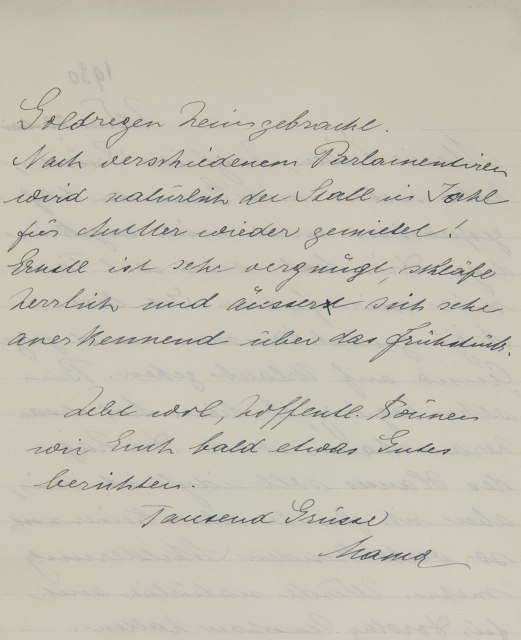 Goldregen heimgebracht.
Nach verschiedenem Parlamentiren
wird natürlich der Stall in Ischl
für Mutter wieder gemietet!
Ernstl ist sehr vergnügt, schläft
herrlich und äussert sich sehr
anerkennend über das Frühstück.
Lebt wol, hoffentl. können
wir Euch bald etwas Gutes
berichten.
Tausend Grüsse
Mama